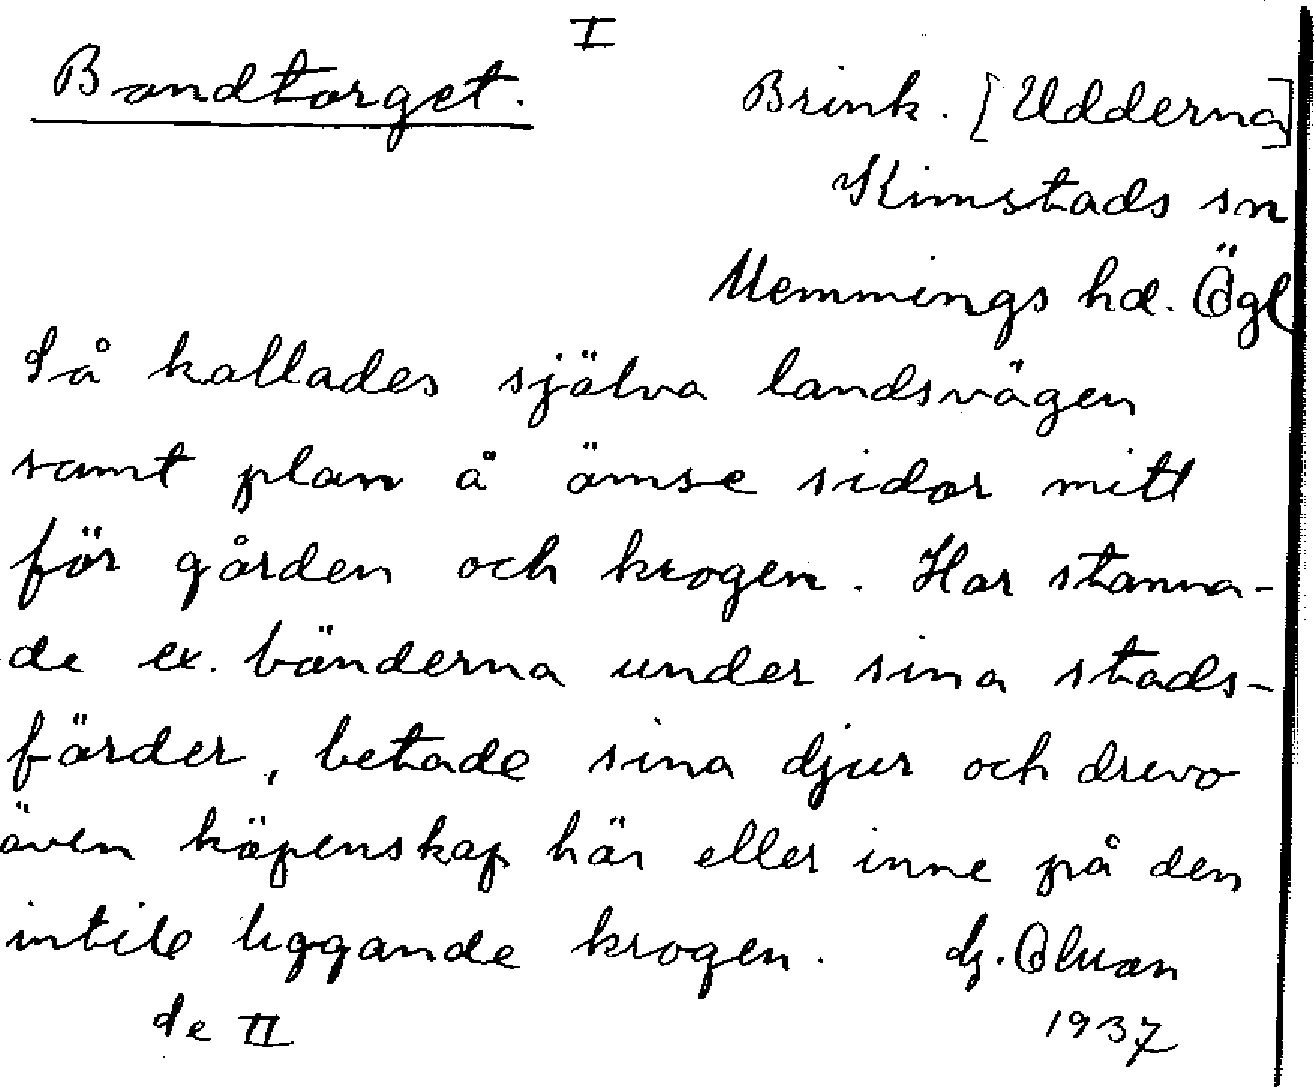 I
Bondtorget.
Brink. [Udderna]
Kimstads sn
Memmings hd. Ögl
Så kallades själva landsvägen
samt plan å ömse sidor mitt
för gården och krogen. Här stanna-
de ex. bönderna under sina stads-
färder, betade sina djur och drevo
även köpenskap här eller inne på den
intill liggande krogen.
1937
se II